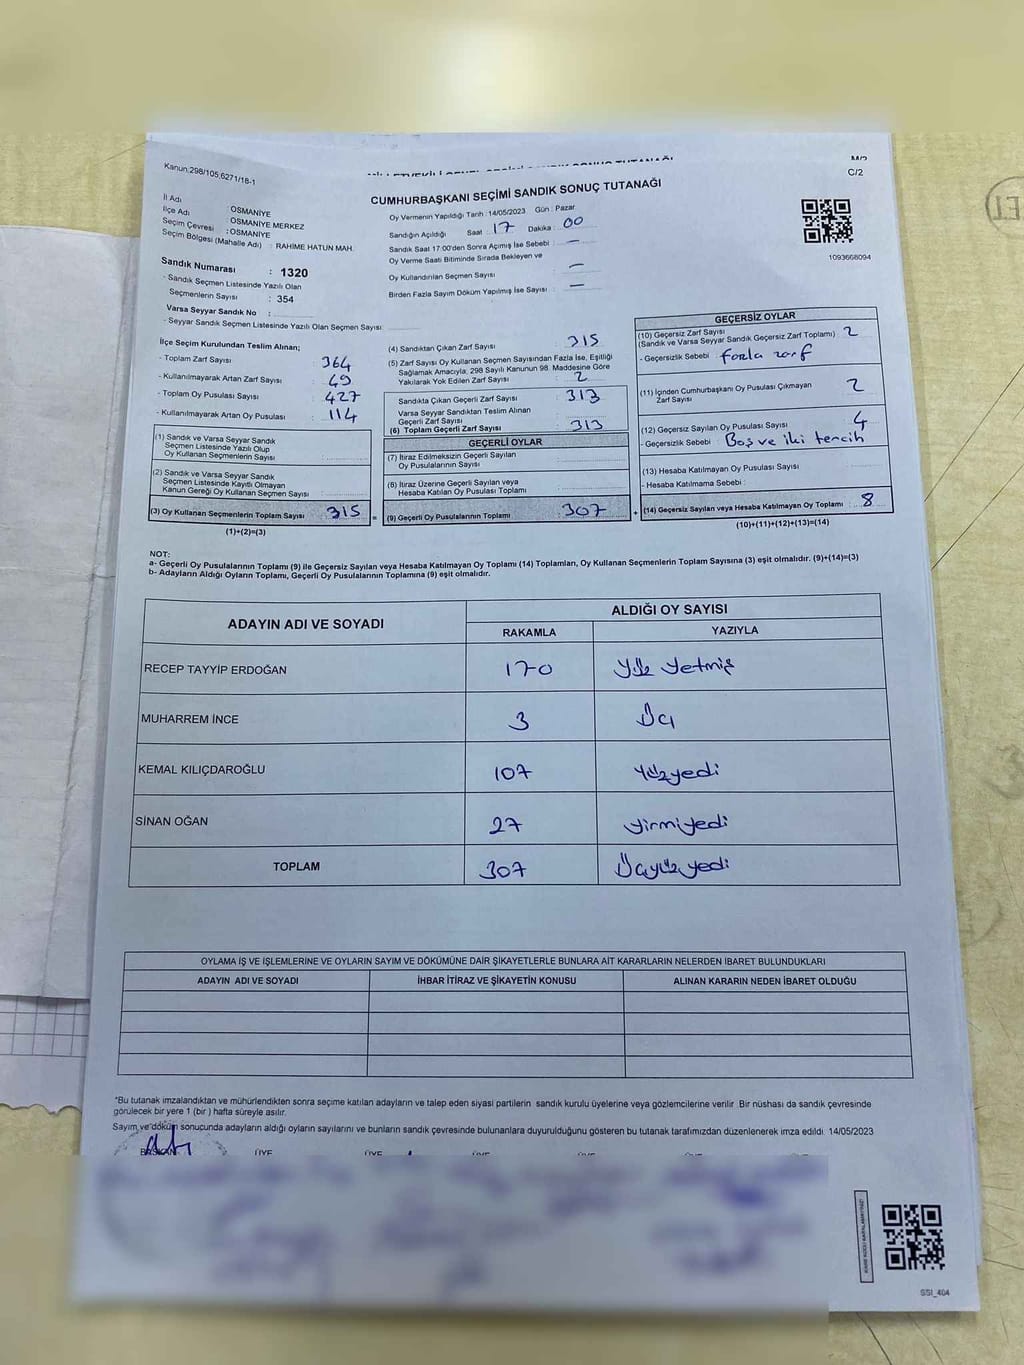 Kanun:298/105;6271/18-1
M/2
C/2
CUMHURBAŞKANI SEÇİMİ SANDIK SONUÇ TUTANAĞI
İl Adı : OSMANİYE
İlçe Adı : OSMANİYE MERKEZ
Seçim Çevresi : OSMANİYE
Seçim Bölgesi (Mahalle Adı) : RAHIME HATUN MAH.
Oy Vermenin Yapıldığı Tarih :14/05/2023 Gün : Pazar
Sandığın Açıldığı Saat : 17 Dakika : 00
Sandık Saat 17:00'den Sonra Açımış İse Sebebi : —
Oy Verme Saati Bitiminde Sırada Bekleyen ve
Oy Kullandırılan Seçmen Sayısı —
Birden Fazla Sayım Döküm Yapılmış İse Sayısı : —
1093668094
Sandık Numarası : 1320
- Sandık Seçmen Listesinde Yazılı Olan
Seçmenlerin Sayısı : 354
Varsa Seyyar Sandık No :
- Seyyar Sandık Seçmen Listesinde Yazılı Olan Seçmen Sayısı:
İlçe Seçim Kurulundan Teslim Alınan;
- Toplam Zarf Sayısı : 364
- Kullanılmayarak Artan Zarf Sayısı : 49
- Toplam Oy Pusulası Sayısı : 427
- Kullanılmayarak Artan Oy Pusulası : 114
(1) Sandık ve Varsa Seyyar Sandık
Seçmen Listesinde Yazılı Olup
Oy Kullanan Seçmenlerin Sayısı
(2) Sandık ve Varsa Seyyar Sandık
Seçmen Listesinde Kayıtlı Olmayan
Kanun Gereği Oy Kullanan Seçmen Sayısı
(3) Oy Kullanan Seçmenlerin Toplam Sayısı 315
(1)+(2)=(3)
(4) Sandıktan Çıkan Zarf Sayısı : 315
(5) Zarf Sayısı Oy Kullanan Seçmen Sayısından Fazla İse, Eşitliği
Sağlamak Amacıyla, 298 Sayılı Kanunun 98. Maddesine Göre
Yakılarak Yok Edilen Zarf Sayısı : 2
Sandıkta Çıkan Geçerli Zarf Sayısı : 313
Varsa Seyyar Sandıktan Teslim Alınan
Geçerli Zarf Sayısı
(6) Toplam Geçerli Zarf Sayısı : 313
GEÇERLİ OYLAR
(7) İtiraz Edilmeksizin Geçerli Sayılan
Oy Pusulalarının Sayısı
(8) İtiraz Üzerine Geçerli Sayılan veya
Hesaba Katılan Oy Pusulası Toplamı
= (9) Geçerli Oy Pusulalarının Toplamı : 307
GEÇERSİZ OYLAR
(10) Geçersiz Zarf Sayısı
(Sandık ve Varsa Seyyar Sandık Geçersiz Zarf Toplamı) 2
- Geçersizlik Sebebi : fazla zarf
(11) İçinden Cumhurbaşkanı Oy Pusulası Çıkmayan
Zarf Sayısı : 2
(12) Geçersiz Sayılan Oy Pusulası Sayısı : 4
- Geçersizlik Sebebi : Boş ve iki tercih
(13) Hesaba Katılmayan Oy Pusulası Sayısı :
- Hesaba Katılmama Sebebi :
+ (14) Geçersiz Sayılan veya Hesaba Katılmayan Oy Toplamı : 8
(10)+(11)+(12)+(13)=(14)
NOT:
a- Geçerli Oy Pusulalarının Toplamı (9) ile Geçersiz Sayılan veya Hesaba Katılmayan Oy Toplamı (14) Toplamları, Oy Kullanan Seçmenlerin Toplam Sayısına (3) eşit olmalıdır. (9)+(14)=(3)
b- Adayların Aldığı Oyların Toplamı, Geçerli Oy Pusulalarının Toplamına (9) eşit olmalıdır.
ADAYIN ADI VE SOYADI
ALDIĞI OY SAYISI
RAKAMLA YAZIYLA
RECEP TAYYİP ERDOĞAN 170 Yüz Yetmiş
MUHARREM İNCE 3 Üç
KEMAL KILIÇDAROĞLU 107 Yüzyedi
SİNAN OĞAN 27 Yirmiyedi
TOPLAM 307 Üçyüzyedi
OYLAMA İŞ VE İŞLEMLERİNE VE OYLARIN SAYIM VE DÖKÜMÜNE DAİR ŞİKAYETLERLE BUNLARA AİT KARARLARIN NELERDEN İBARET BULUNDUKLARI
ADAYIN ADI VE SOYADI İHBAR İTİRAZ VE ŞİKAYETİN KONUSU ALINAN KARARIN NEDEN İBARET OLDUĞU
*Bu tutanak imzalandıktan ve mühürlendikten sonra seçime katılan adayların ve talep eden siyasi partilerin sandık kurulu üyelerine veya gözlemcilerine verilir .Bir nüshası da sandık çevresinde
görülecek bir yere 1 (bir ) hafta süreyle asılır.
Sayım ve döküm sonucunda adayların aldığı oyların sayılarını ve bunların sandık çevresinde bulunanlara duyurulduğunu gösteren bu tutanak tarafımızdan düzenlenerek imza edildi. 14/05/2023
BAŞKAN ÜYE ÜYE ÜYE ÜYE ÜYE ÜYE
SSI_404